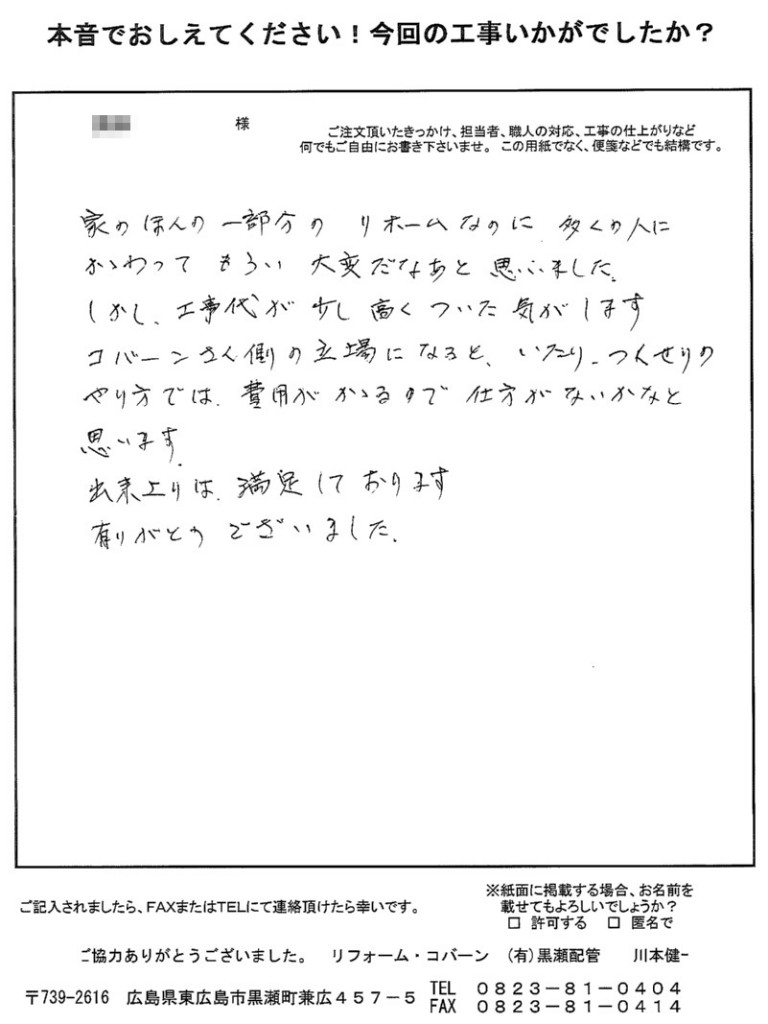 本音でおしえてください！今回の工事いかがでしたか？
様
ご注文頂いたきっかけ、担当者、職人の対応、工事の仕上がりなど
何でもご自由にお書き下さいませ。この用紙でなく、便箋などでも結構です。
家のほんの一部分の リホームなのに 多くの人に
かゝわって もらい 大変だなあと 思いました。
しかし、工事代が 少し 高く ついた 気がします
コバーンさん側の立場になると、いたり、つくせりの
やり方では、費用が かゝるので 仕方がないかなと
思います。
出来上りは、満足して おります
有りがとう ございました。
ご記入されましたら、FAXまたはTELにて連絡頂けたら幸いです。
※紙面に掲載する場合、お名前を
載せてもよろしいでしょうか？
□ 許可する □ 匿名で
ご協力ありがとうございました。 リフォーム・コバーン （有）黒瀬配管 川本健一
〒739-2616 広島県東広島市黒瀬町兼広４５７－５
TEL ０８２３－８１－０４０４
FAX ０８２３－８１－０４１４